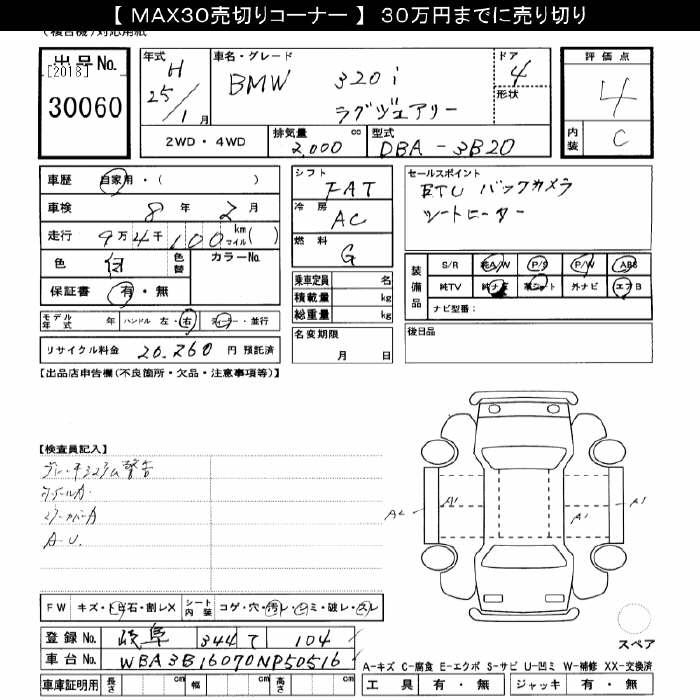 【 MAX30売切りコーナー 】 30万円までに売り切り
(複合機)対応用紙
出品No.
[2018]
30060
年式 H 25/1月
車名・グレード BMW 320i ラグジュアリー
ドア 4
形状
2WD・4WD
排気量 2,000 cc
型式 DBA-3B20
評価点 4
内装 C
車歴 自家用・( )
車検 8年2月
走行 9万4千100 km マイル( )
色 白 色替 カラーNo.
保証書 有・無
モデル年式 年 ハンドル 左・右 ディーラー・並行
リサイクル料金 20,260 円 預託済
シフト FAT
冷房 AC
燃料 G
乗車定員 名
積載量 kg
総重量 kg
名変期限
月 日
セールスポイント
ETC バックカメラ
シートヒーター
装備品
S/R 純A/W P/S P/W ABS
純TV 純ナビ 革シート 外ナビ エアB
ナビ型番:
後日品
【出品店申告欄(不良箇所・欠品・注意事項等)】
【検査員記入】
ブレーキシステム警告
ホイールA.
ミラーカバーA
A.U.
A2 A1 A1 A1
FW キズ・トビ石・割レX シート内装 コゲ・穴・汚レ・凹ミ・破レ・スレ
登録No. 岐阜 344 て 104
車台No. WBA3B16070NP50516
車庫証明用 長さ cm 幅 cm 高さ cm
スペア
A-キズ C-腐食 E-エクボ S-サビ U-凹ミ W-補修 XX-交換済
工具 有・無 ジャッキ 有・無